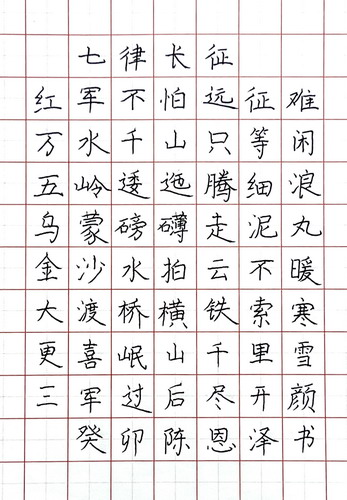 七律长征
红军不怕远征难
万水千山只等闲
五岭逶迤腾细浪
乌蒙磅礴走泥丸
金沙水拍云不暖
大渡桥横铁索寒
更喜岷山千里雪
三军过后尽开颜
癸卯陈恩泽书